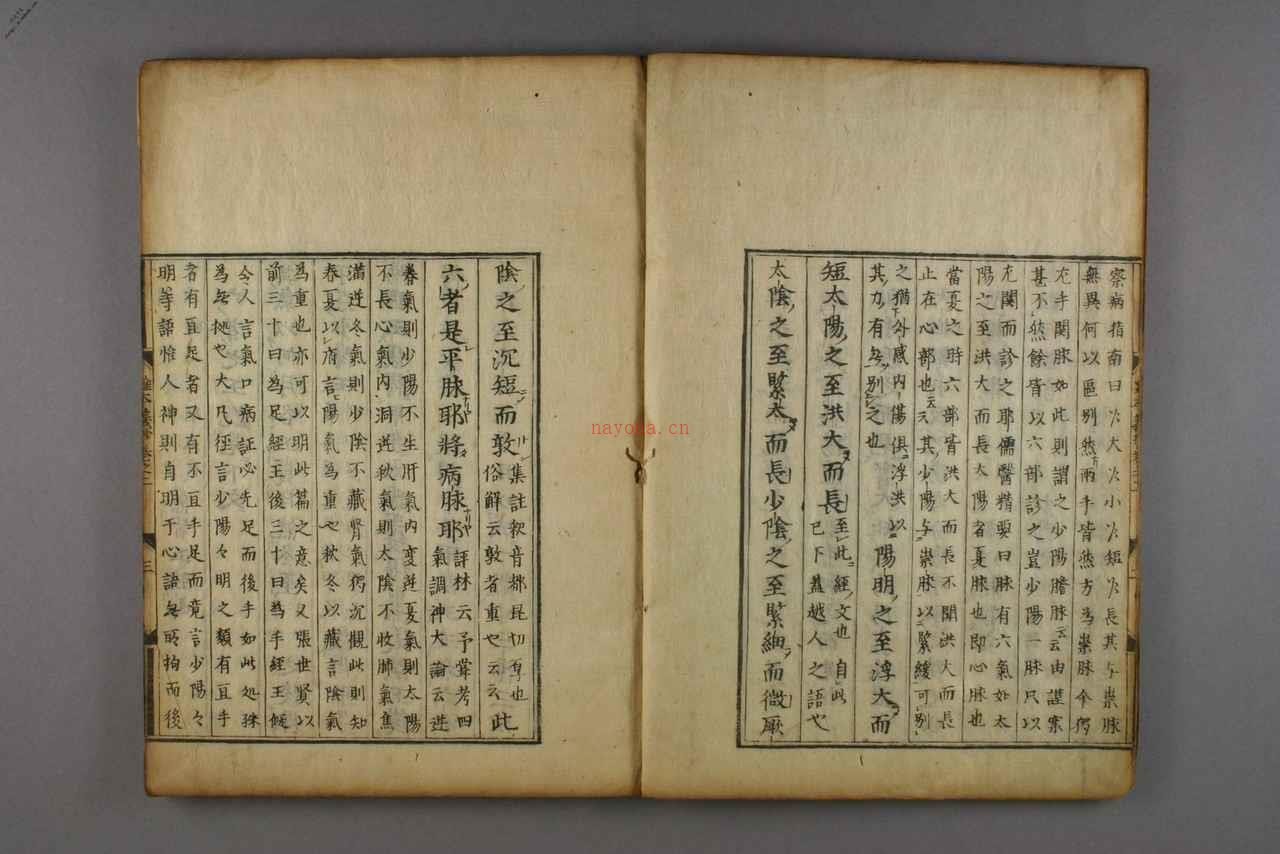 察病指南曰乍大乍小乍短乍長其与祟脉
無異何以區別然兩手皆然方為祟脉今独
左手関脉如此則謂之少陽膽脉云云由謹案
甚不然餘皆以六部診之豈少陽一脉只以
左関而診之耶儒醫精要曰脉有六氣如太
陽之至洪大而長太陽者夏脉也即心脉也
當夏之時六部皆洪大而長不聞洪大而長
止在心部也云云其少陽与祟脉以緊緩可別
之猶外感内傷俱浮洪以
其力有无別之也
陽明之至浮大而
短太陽之至洪大而長
至此經文也自此
已下蓋越人之語也
太陰之至緊大而長少陰之至緊細而微厥
陰之至沉短而敦
集註釈音都昆切厚也
俗解云敦者重也云云
此
六者是平脉耶將病脉耶
評林云予嘗考四
氣調神大論云逆
春氣則少陽不生肝氣内変逆夏氣則太陽
不長心氣内洞逆秋氣則太陰不收肺氣焦
滿逆冬氣則少陰不藏腎氣独沉観此則知
春夏以府言陽氣為重也秋冬以藏言陰氣
為重也亦可以明此篇之意矣又張世賢以
前三十日為足經王後三十日為手經王
今人言氣口病証必先足而後手如此
為无也大凡徑言少陽々明之類有直手
者有直足者又有不直手足而竟言少陽々
明等語惟人神則自明于心語无所拘而後
三
nayona.cn